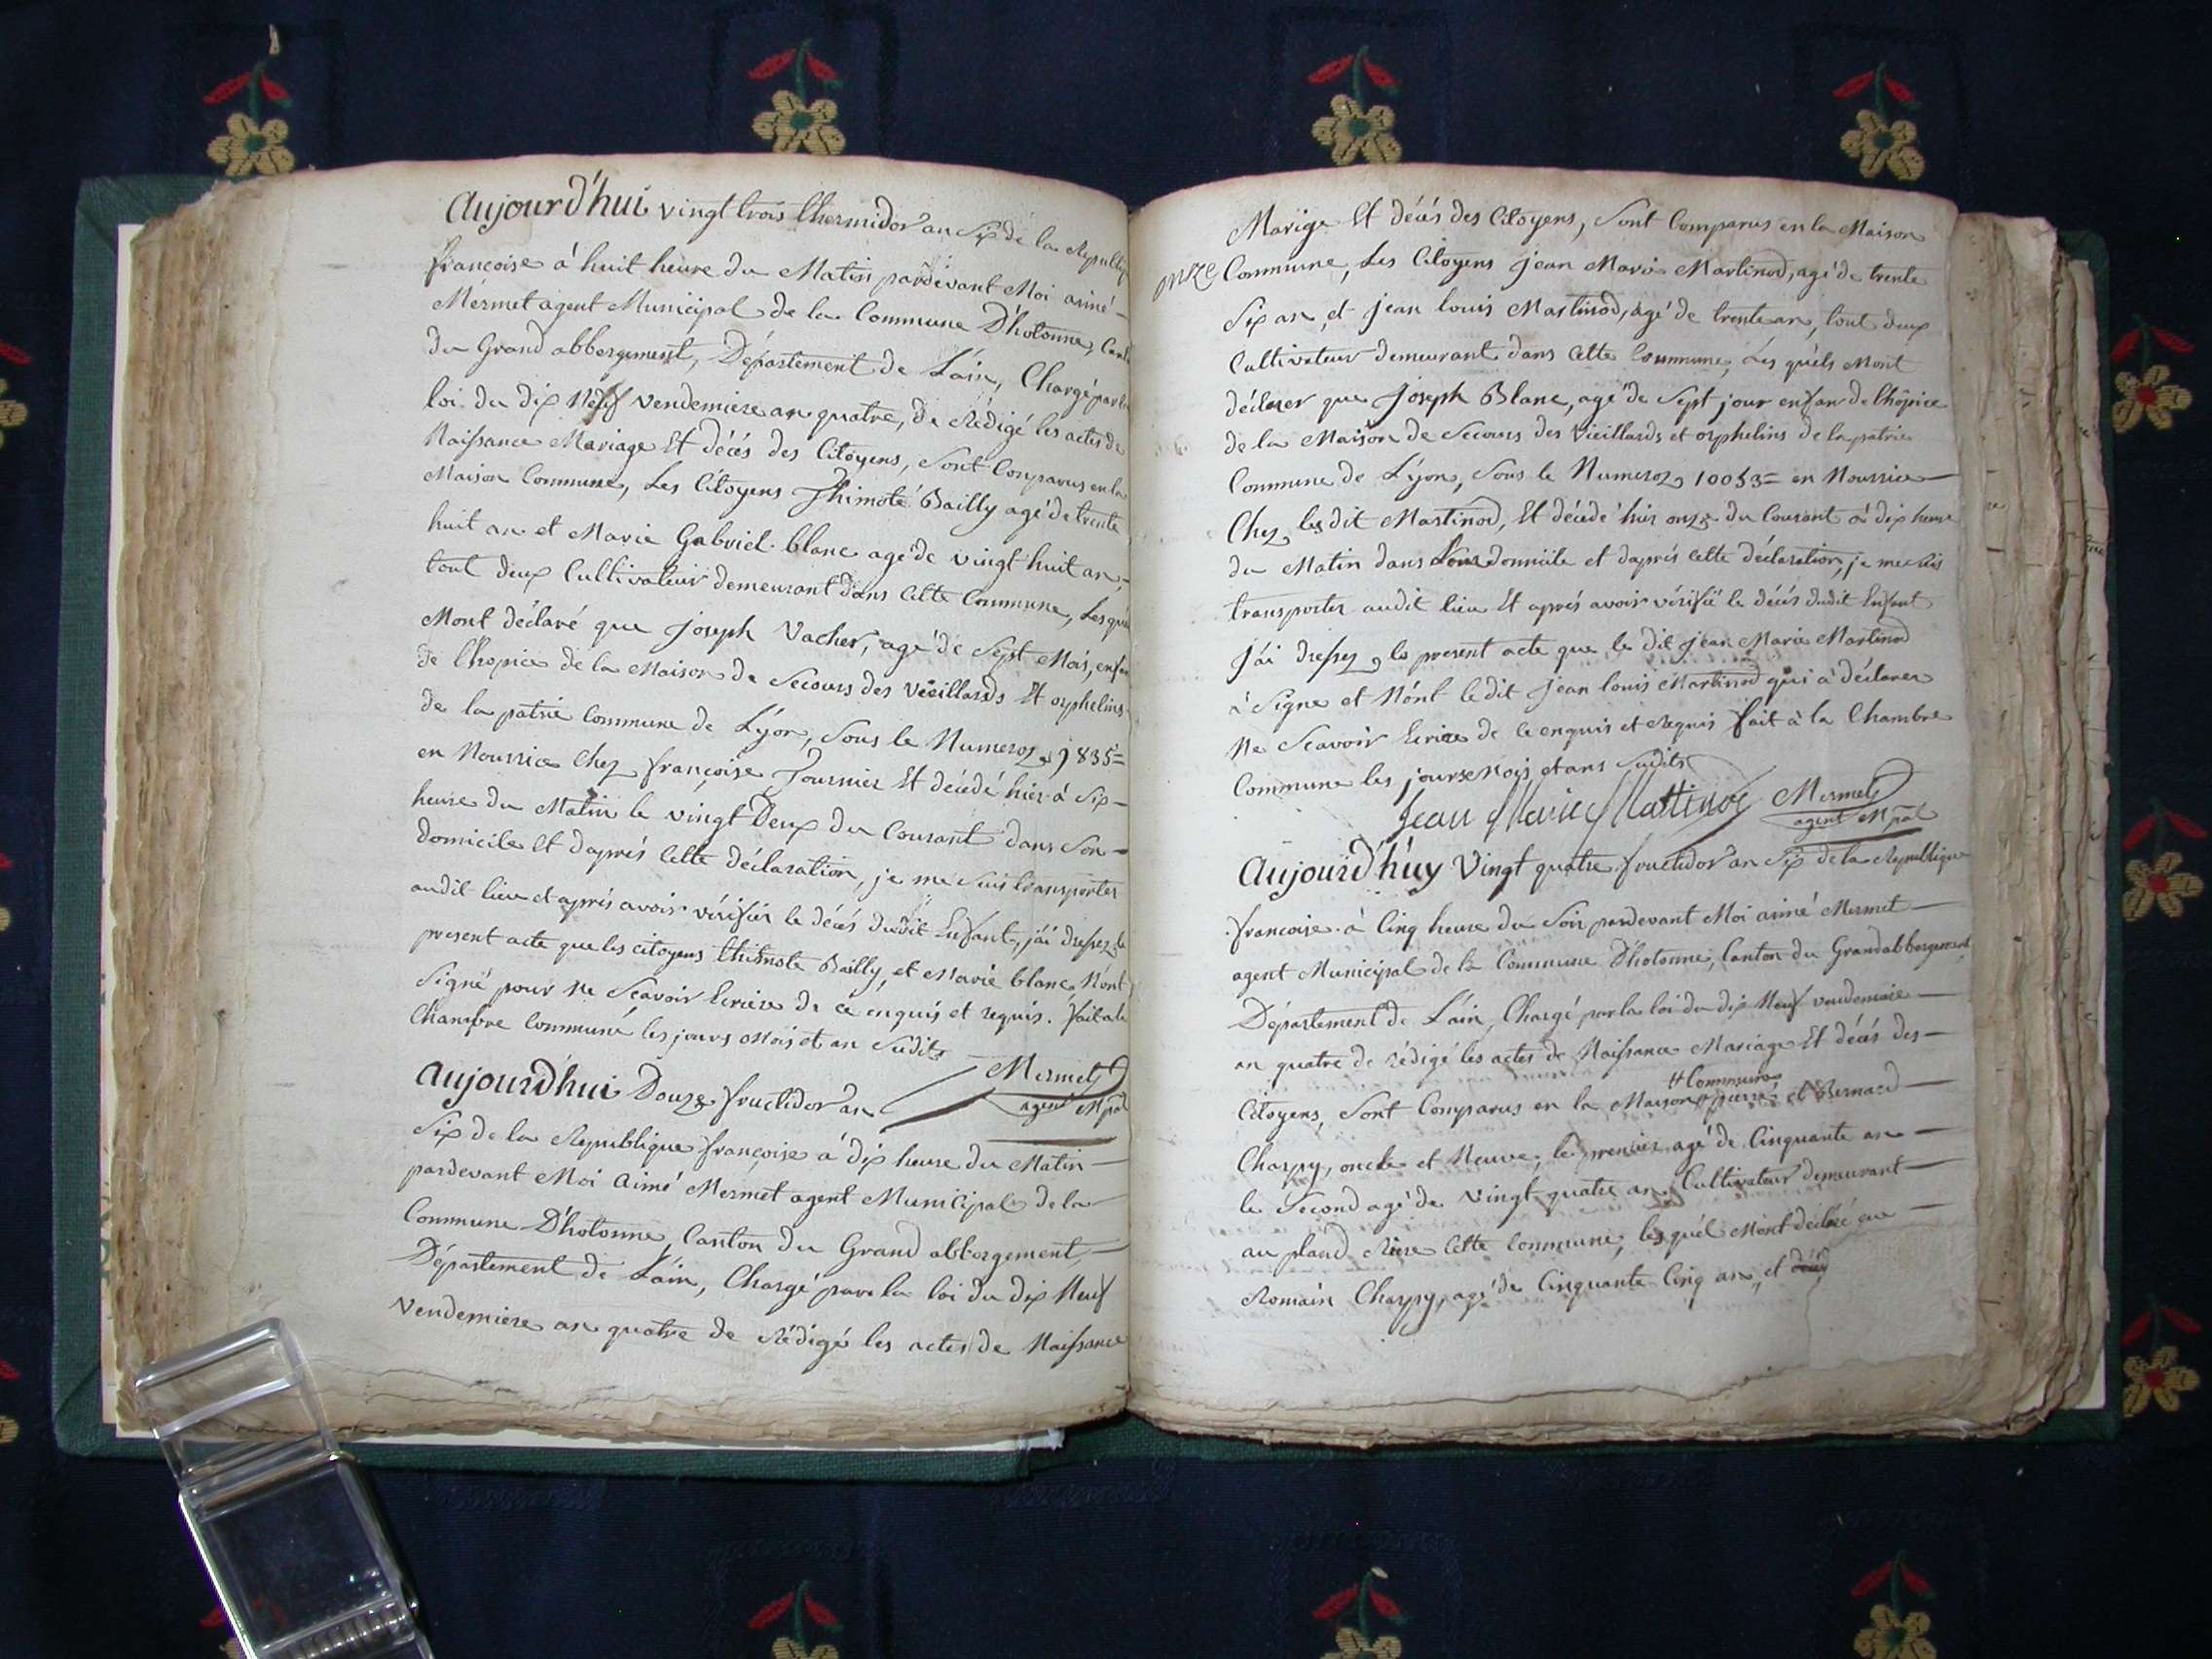 Aujourd'hui vingt trois thermidor an Six de la Republiq
francoise à huit heure du Matin pardevant Moi aimé
Mermet agent Municipal de la Commune D'hotonne, Cant
du Grand abbergement, Département de L'áin, Chargé par la
loi du dix Neuf vendemiere an quatre, de Rédigé les actes de
Naissance Mariage Et décés des Citoyens, Sont Comparus en la
Maison Commune, Les Citoyens Thimoté Bailly agé de trente
huit an et Marie Gabriel blanc agé de vingt huit an
tout deux Cultivateur demeurant dans Cette Commune, Lesquel
Mont déclaré que Joseph Vacher, agé de Sept Mois, enfan
de lhopice de la Maison de Secours des Vieillards Et orphelins
de la patrie Commune de Lÿon, Sous le Numeroz 9835=
en Nourrice Chez françoise Fournier Et décédé hier à Six
heure du Matin le vingt Deux du Courant dans Son
domicile Et daprés Cette déclaration, je me Suis transporter
audit lieu et aprés avoir vérifiér le décés dudit Enfant, jái dressez le
present acte que les citoyens thimote Bailly, et Marie blanc N'ont
Signé pour Ne Scavoir Ecriere de ce enquis et requis. fait à la
Chambre Commune les jours Mois et an Sudits
Mermet
agent Mpal
Aujourd'hui Douze fructidor an
Six de la Republique françoise à dix heure du Matin
pardevant Moi Aimé Mermet agent Municipal de la
Commune D'hotonne, Canton du Grand abbergement,
Département de L'áin, Chargé par la loi du dix Neuf
Vendemiere an quatre de Rédigé les actes de Naissance
Marige Et décés des Citoyens, Sont Comparus en la Maison
onze
Commune, Les Citoyens Jean Marie Martinod, agé de trente
Six an, et Jean Louis Martinod, agé de trente an, tout deux
Cultivateur demeurant dans Cette Commune, Les quels Mont
déclarer que Joseph Blanc, agé de Sept jour enfan de lhopice
de la Maison de Secours des Vieillards et orphelins de la patrie
Commune de Lÿon, Sous le Numeroz 10053= en Nourrice
Chez les dit Martinod, Et décédé hier onze du Courant à dix heure
du Matin dans Leur domicile et daprés Cette déclaration, je me suis
transporter audit lieu Et aprés avoir vérifié le décés dudit Enfant
Jái dressez le present acte que le dit Jean Marie Martinod
à Signe et Nónt le dit Jean Louis Martinod qui à déclarer
Ne Scavoir Ecrire de ce enquis et requis fait à la Chambre
Commune les jours Mois et ans Sudits
Jean Marie Martinod Mermet
agent Mpal
Aujourd'huy Vingt quatre fructidor an Six de la Republique
francoise à Cinq heure du Soir pardevant Moi aimé Mermet
agent Municipal de la Commune D'hotonne, Canton du Grand abbergement
Département de L'áin, Chargé par la loi du dix Neuf vendemiere
an quatre de rédigé les actes de Naissance Mariage Et décés des
# Commune
Citoyens, Sont Comparus en la Maison # pierre et Bernard
Charpy, oncle et Neuve, le premier agé de Cinquante an
le Second agé de Vingt quatre an Cultivateur demeurant
au pland Riere Cette Commune, lesquél Mont déclaré que
Romain Charpy, agé de Cinquante Cinq an, et